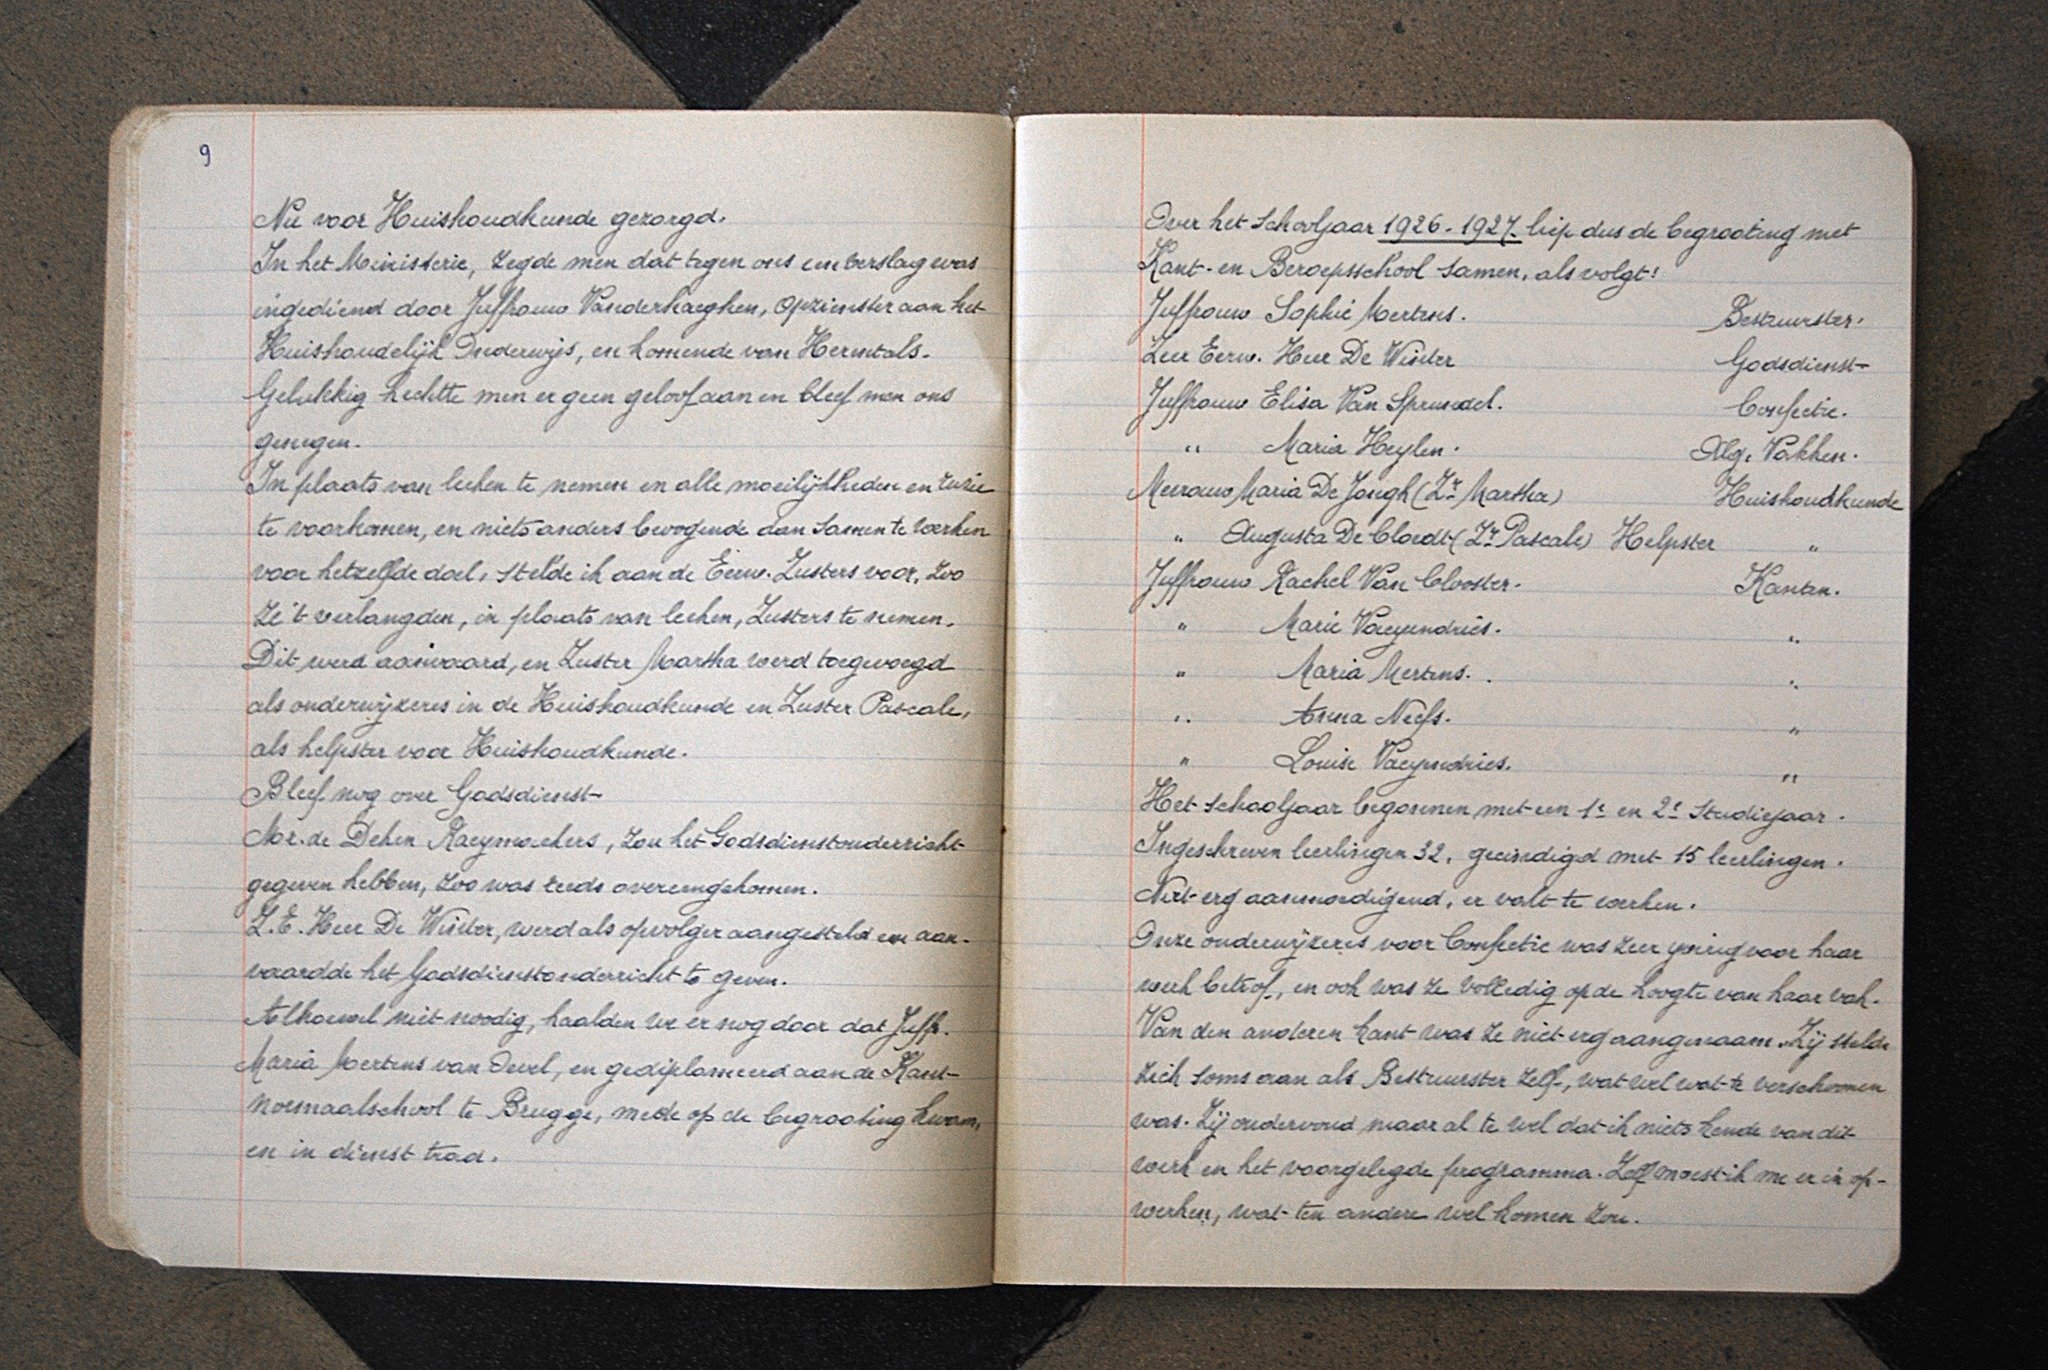 9
Nu voor Huishoudkunde gezorgd.
In het Ministerie, zegde men dat tegen ons een verslag was
ingediend door Juffrouw Vanderhaeghen, opzienster aan het
Huishoudelijk Onderwijs, en komende van Herentals.
Gelukkig hechtte men er geen geloof aan en bleef men ons
genegen.
In plaats van leeken te nemen en alle moeilijkheden en ruzie
te voorkomen, en niets anders beoogende dan samen te werken
voor hetzelfde doel, stelde ik aan de Eerw. Zusters voor, zoo
ze 't verlangden, in plaats van leeken, Zusters te nemen.
Dit werd aanvaard, en Zuster Martha werd toegevoegd
als onderwijzeres in de Huishoudkunde en Zuster Pascale,
als helpster voor Huishoudkunde.
Bleef nog over Godsdienst
Mr. de Deken Raeymaekers, zou het Godsdienstonderricht
gegeven hebben, zoo was reeds overeengekomen.
Z.E. Heer De Winter, werd als opvolger aangesteld en aan-
vaardde het Godsdienstonderricht te geven.
Alhoewel niet noodig, haalden we er nog door dat Juffr.
Maria Mertens van Oevel, en gediplomeerd aan de Kant-
normaalschool te Brugge, mede op de begrooting kwam,
en in dienst trad.
Over het schooljaar 1926-1927 liep dus de begrooting met
Kant- en Beroepsschool samen, als volgt:
Juffrouw Sophie Mertens. Bestuurster.
Zeer Eerw. Heer De Winter Godsdienst
Juffrouw Elisa Van Sprundel. Confectie.
" Maria Heylen. Alg. Vakken.
Mevrouw Maria De Jongh (Zr Martha) Huishoudkunde
" Augusta De Cloedt (Zr Pascale) Helpster "
Juffrouw Rachel Van Clooster. Kanten.
" Marie Vaeyendries. "
" Maria Mertens. "
" Anna Neefs. "
" Louise Vaeyendries. "
Het schooljaar begonnen met een 1e en 2e Studiejaar.
Ingeschreven leerlingen 32, geeindigd met 15 leerlingen.
Niet erg aanmoedigend, er valt te werken.
Onze onderwijzeres voor Confectie was zeer ijverig voor haar
werk betrof, en ook was ze volledig op de hoogte van haar vak.
Van den anderen kant was ze niet erg aangenaam. Zij stelde
zich soms aan als Bestuurster zelf, wat wel wat te verschoonen
was. Zij ondervond maar al te wel dat ik niets kende van dit
werk en het voorgelegde programma. Zelf moest ik me er in op-
werken, wat ten andere wel komen zou.